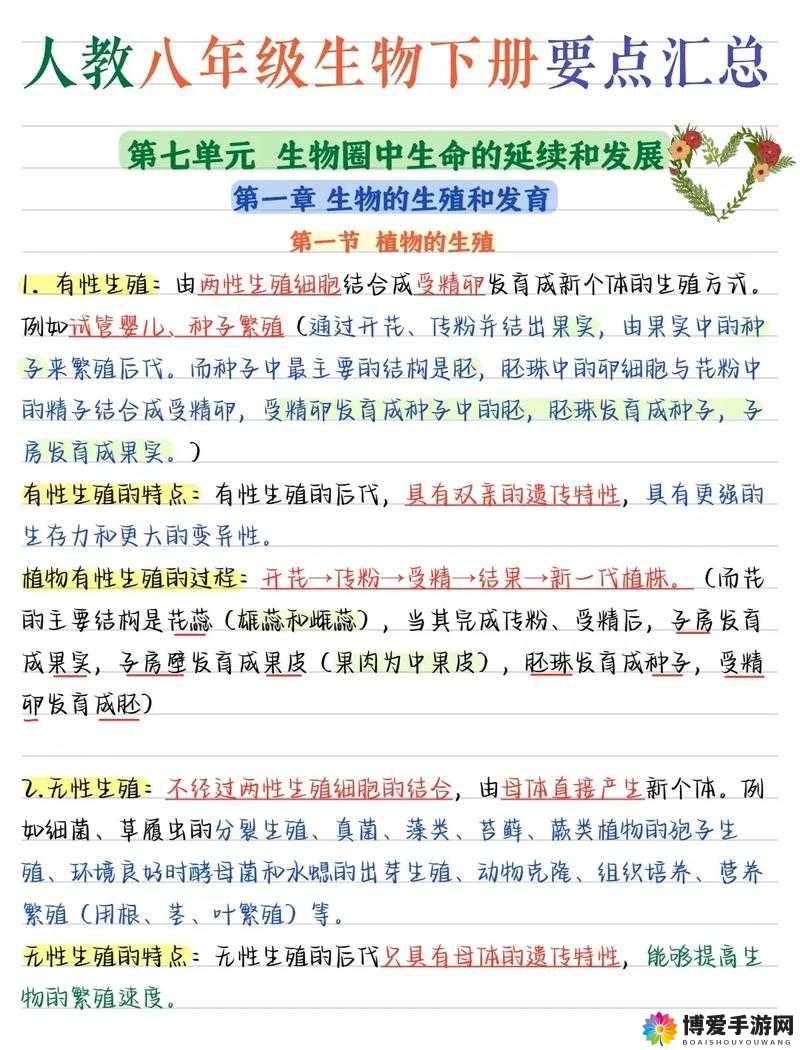 人教八年级生物下册要点汇总
第七单元 生物圈中生命的延续和发展
第一章 生物的生殖和发育
第一节 植物的生殖
1. 有性生殖：由两性生殖细胞结合成受精卵发育成新个体的生殖方式。
例如试管婴儿、种子繁殖（通过开花、传粉并结出果实，由果实中的种
子来繁殖后代。而种子中最主要的结构是胚，胚珠中的卵细胞与花粉中
的精子结合成受精卵，受精卵发育成种子中的胚，胚珠发育成种子，子
房发育成果实。）
有性生殖的特点：有性生殖的后代，具有双亲的遗传特性，具有更强的
生存力和更大的变异性。
植物有性生殖的过程：开花→传粉→受精→结果→新一代植株。（而花
的主要结构是花蕊（雄蕊和雌蕊），当其完成传粉、受精后，子房发育
成果实，子房壁发育成果皮（果肉为中果皮），胚珠发育成种子，受精
卵发育成胚）
2.无性生殖：不经过两性生殖细胞的结合，由母体直接产生新个体。例
如细菌、草履虫的分裂生殖、真菌、藻类、苔藓、蕨类植物的孢子生
殖、环境良好时酵母菌和水螅的出芽生殖、动物克隆、组织培养、营养
繁殖（用根、茎、叶繁殖）等。
无性生殖的特点：无性生殖的后代只具有母体的遗传特性，能够提高生
物的繁殖速度。
博爱手游网
BOAISHOUYOUWANG